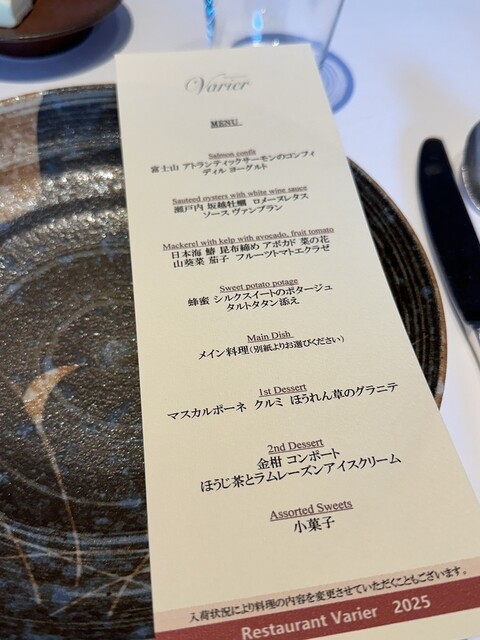 Varier
MENU
Salmon confit
富士山 アトランティックサーモンのコンフィ
ディル ヨーグルト
Sauteed oysters with white wine sauce
瀬戸内 坂越牡蠣 ロメーヌレタス
ソース ヴァンブラン
Mackerel with kelp with avocado, fruit tomato
日本海 鰆 昆布締め アボカド 菜の花
山葵菜 茄子 フルーツトマトエクラゼ
Sweet potato potage
蜂蜜 シルクスイートのポタージュ
タルトタタン添え
Main Dish
メイン料理(別紙よりお選びください)
1st Dessert
マスカルポーネ クルミ ほうれん草のグラニテ
2nd Dessert
金柑 コンポート
ほうじ茶とラムレーズンアイスクリーム
Assorted Sweets
小菓子
入荷状況により料理の内容を変更させていただくこともございます。
Restaurant Varier 2025